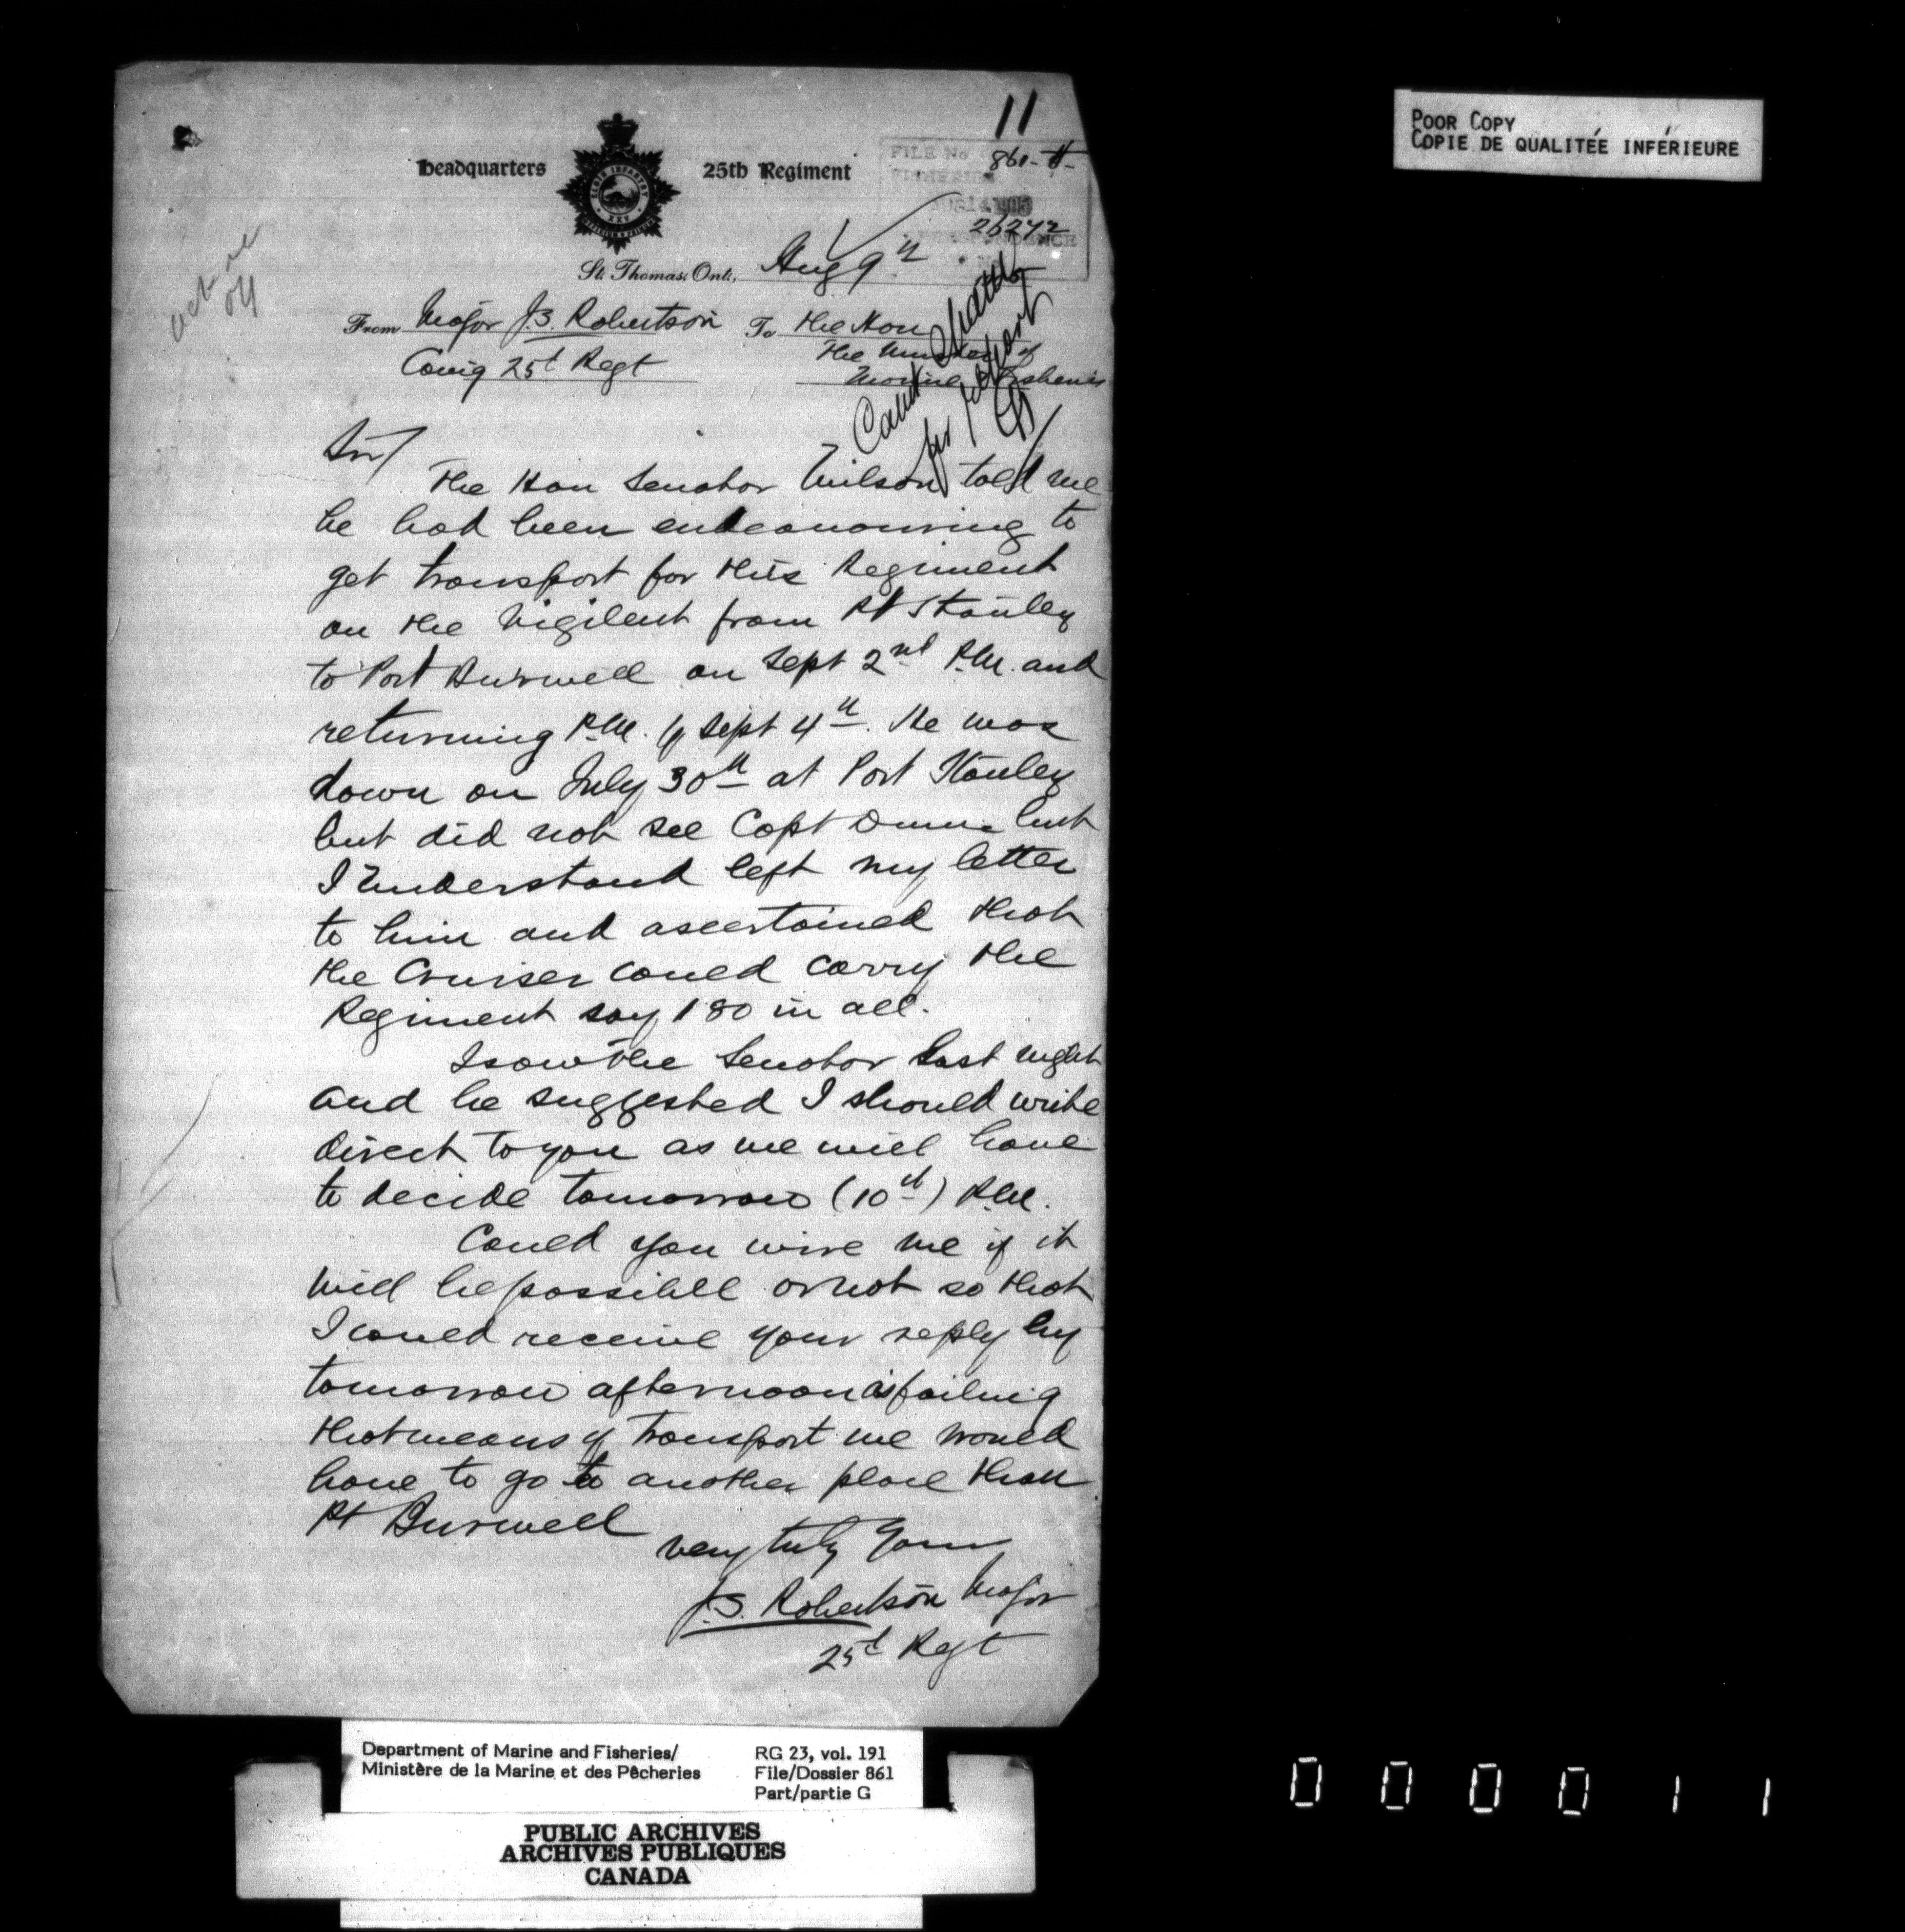 11
POOR COPY
COPIE DE QUALITÉE INFÉRIEURE
Headquarters 25th Regiment
ELGIN INFANTRY
XXV
FILE No 861-
FISHERIES
AUG 14
26272
CORRESPONDENCE
St. Thomas, Ont., Aug 9th
From Major J.S. Robertson To The Hon
Comg 25th Regt The Minister of
Marine Fisheries
Capt Spain
for report
Sir/
The Hon Senator Wilson told me
he had been endeavouring to
get transport for this Regiment
on the Vigilent from Pt Stanley
to Port Burwell on Sept 2nd P.M. and
returning P.M. of Sept 4th. He was
down on July 30th at Port Stanley
but did not see Capt Dunn but
I understand left my letter
to him and ascertained that
the Cruiser could carry the
Regiment say 180 in all.
I saw the Senator last night
and he suggested I should write
direct to you as we will have
to decide tomorrow (10th) P.M.
Could you wire me if it
will be possibll or not so that
I could receive your reply by
tomorrow afternoon as failing
that means of transport we would
have to go to another place than
Pt Burwell
Very truly Yours
J.S. Robertson Major
25th Regt
Department of Marine and Fisheries/
Ministère de la Marine et des Pêcheries
RG 23, vol. 191
File/Dossier 861
Part/partie G
PUBLIC ARCHIVES
ARCHIVES PUBLIQUES
CANADA
000011